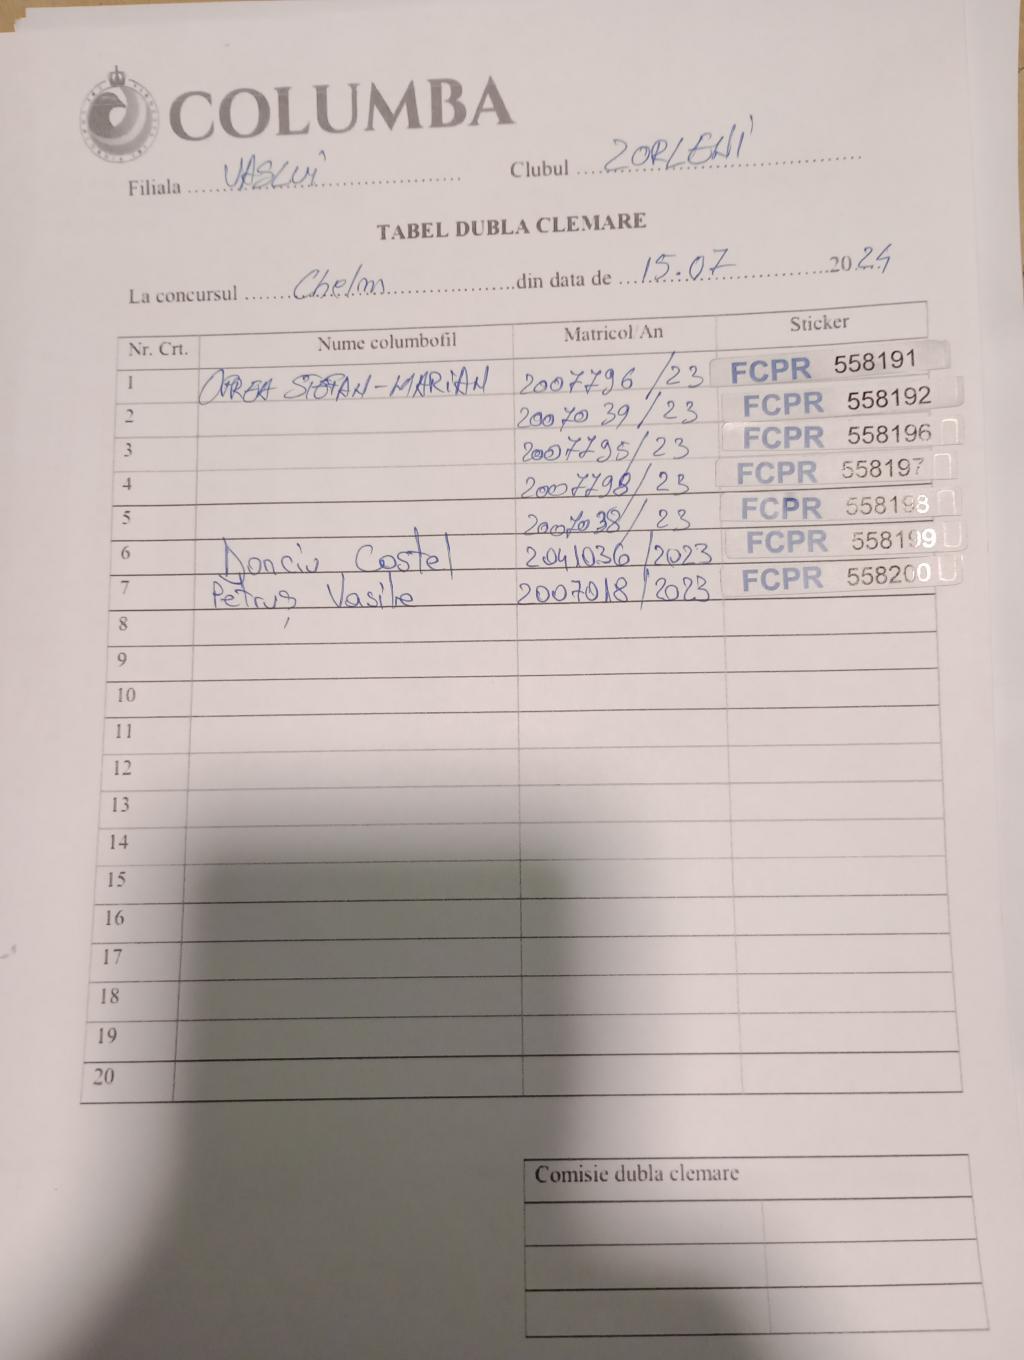 COLUMBA
Filiala ...... VASLUI ...... Clubul ...... ZORLENI ......
TABEL DUBLA CLEMARE
La concursul ...... Chelm ...... din data de ... 15.07 ...... 2024
Nr. Crt. Nume columbofil Matricol/An Sticker
1 STEFAN-MARIAN 2007796/23 FCPR 558191
2 2007039/23 FCPR 558192
3 2007795/23 FCPR 558196
4 2007798/23 FCPR 558197
5 2007038/23 FCPR 558198
6 Donciu Costel 2041036/2023 FCPR 558199
7 Petruș Vasile 2007018/2023 FCPR 558200
8
9
10
11
12
13
14
15
16
17
18
19
20
Comisie dubla clemare